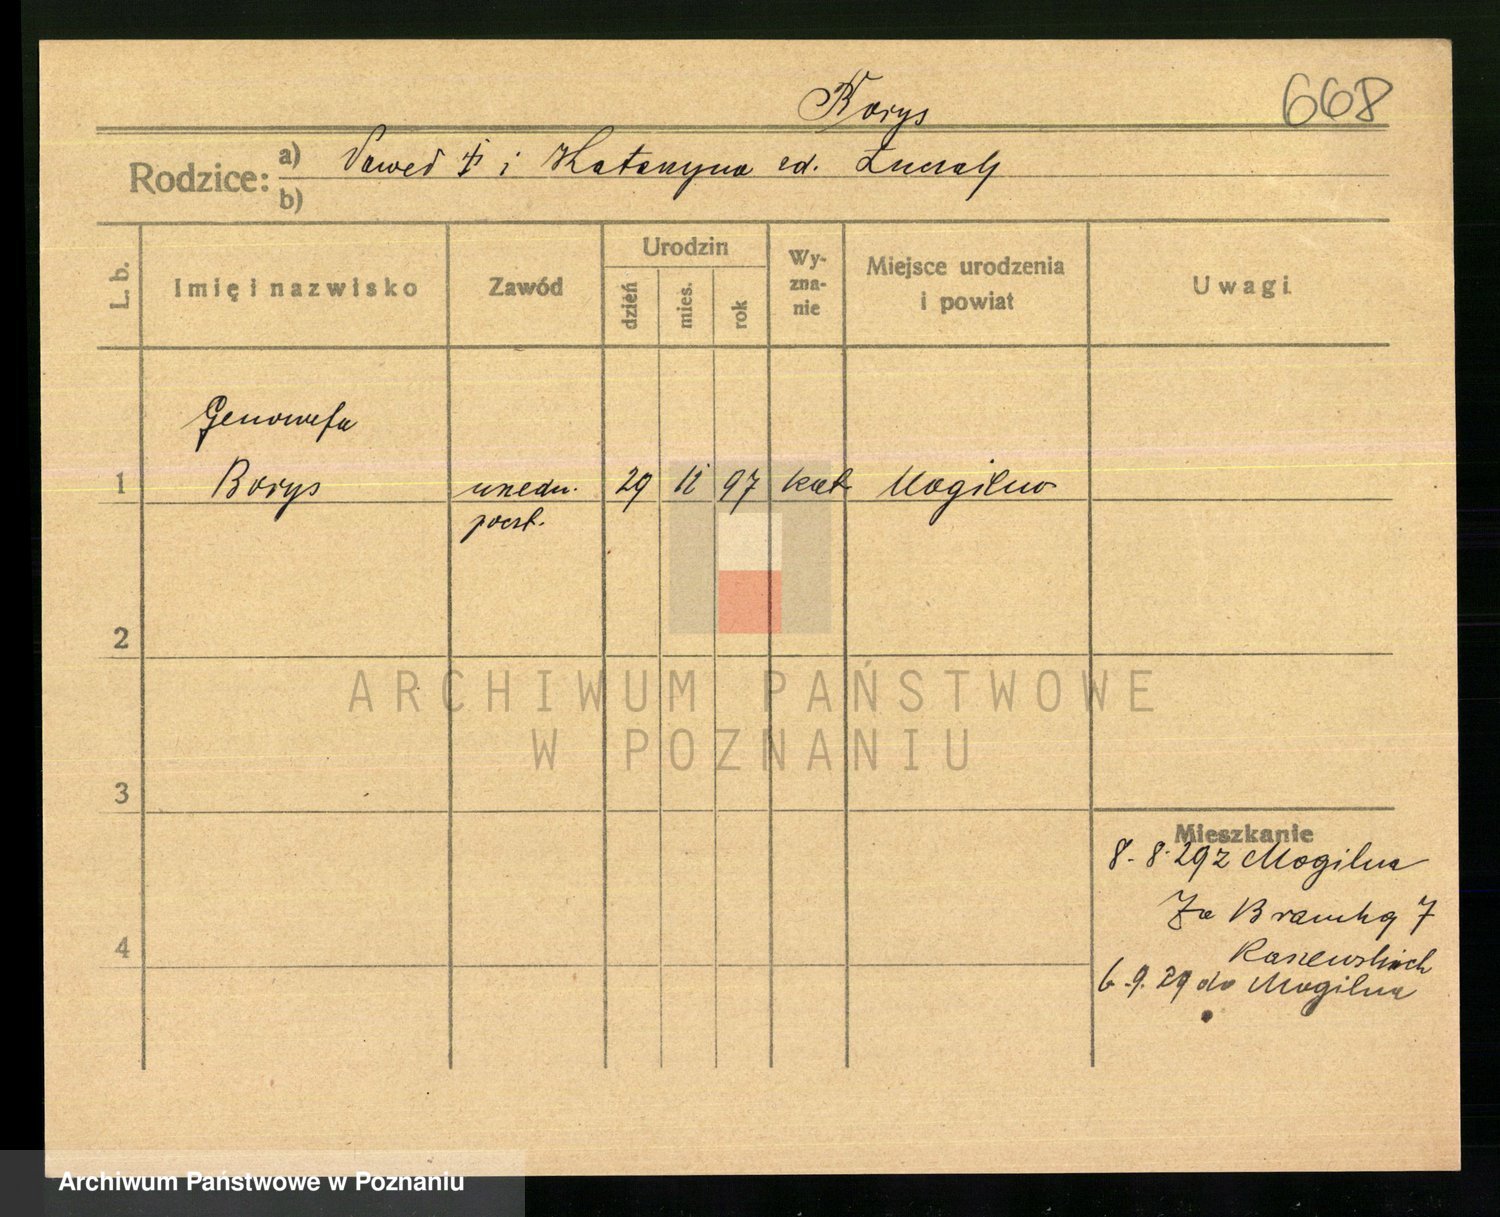 Borys
668
Rodzice: a) Paweł i Katarzyna
b)
L. b.
Imię i nazwisko
Zawód
Urodzin
dzień
mies.
rok
Wy-
zna-
nie
Miejsce urodzenia
i powiat
Uwagi
Genowefa
1 Borys urzedn. 29 11 97 kat Mogilno
poczt.
2
ARCHIWUM PAŃSTWOWE
W POZNANIU
3
Mieszkanie
8. 8. 29 z Mogilna
Za Bramką 7
4
6. 9. 29 do Mogilna
Archiwum Państwowe w Poznaniu